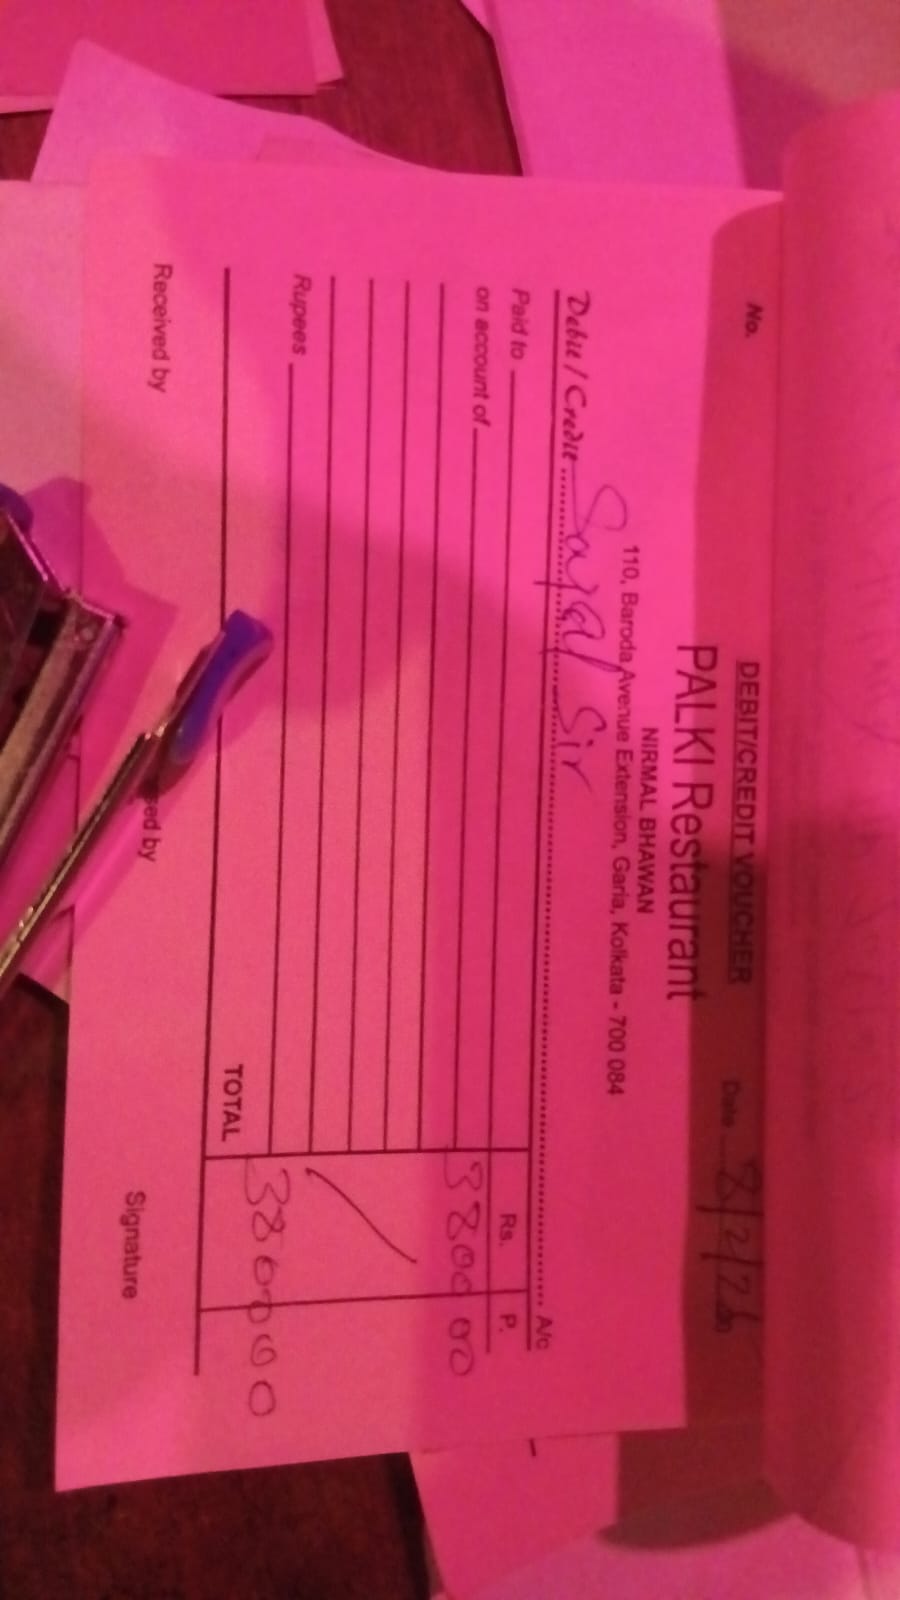 No.
DEBIT/CREDIT VOUCHER
Date 8/2/26
PALKI Restaurant
NIRMAL BHAWAN
110, Baroda Avenue Extension, Garia, Kolkata - 700 084
Debit / Credit Sayal Sir A/c
Paid to Rs. P.
on account of 3800 00
Rupees
TOTAL 3800 00
Received by sed by Signature